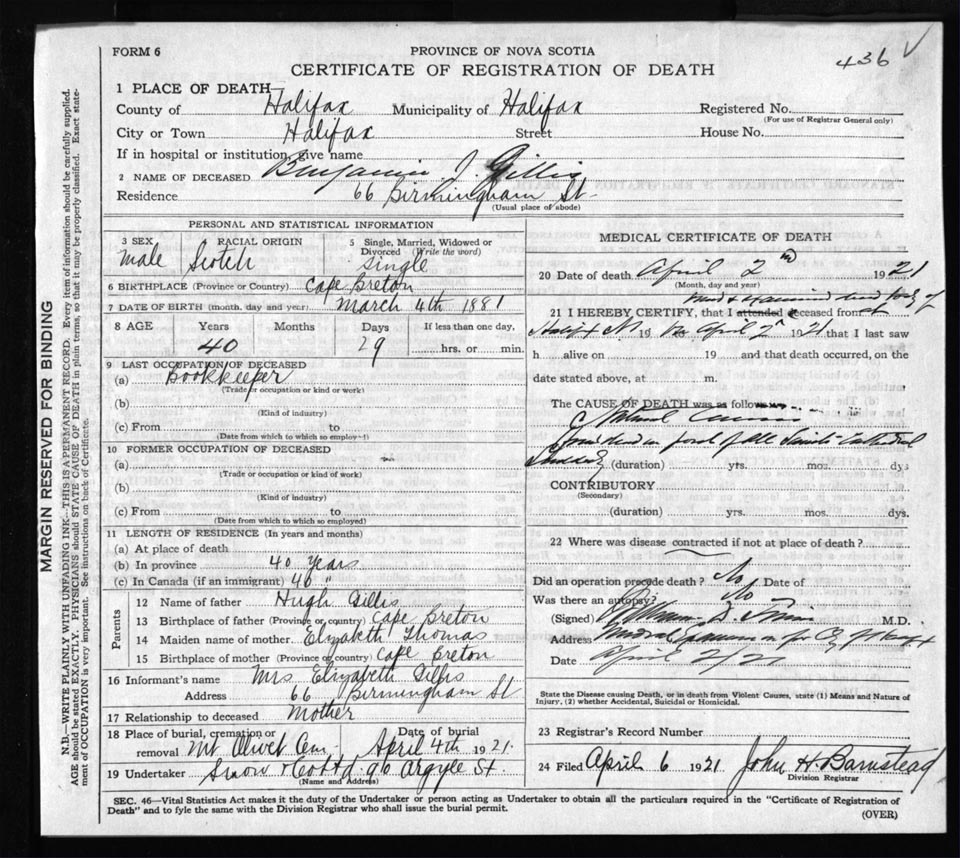 FORM 6
PROVINCE OF NOVA SCOTIA
436
CERTIFICATE OF REGISTRATION OF DEATH
1 PLACE OF DEATH
County of Halifax Municipality of Halifax Registered No.
(For use of Registrar General only)
City or Town Halifax Street House No.
If in hospital or institution, give name
2 NAME OF DECEASED Benjamin J. Gillis
Residence 66 Birmingham St.
(Usual place of abode)
PERSONAL AND STATISTICAL INFORMATION
3 SEX RACIAL ORIGIN 5 Single, Married, Widowed or Divorced (Write the word)
Male Scotch Single
6 BIRTHPLACE (Province or Country) Cape Breton
7 DATE OF BIRTH (month, day and year) March 4th 1881
8 AGE Years Months Days If less than one day,
40 29 hrs. or min.
9 LAST OCCUPATION OF DECEASED
(a) Bookkeeper
(Trade or occupation or kind of work)
(b)
(Kind of industry)
(c) From to
(Date from which to which so employed)
10 FORMER OCCUPATION OF DECEASED
(a)
(Trade or occupation or kind of work)
(b)
(Kind of industry)
(c) From to
(Date from which to which so employed)
11 LENGTH OF RESIDENCE (In years and months)
(a) At place of death
(b) In province 40 years
(c) In Canada (if an immigrant) 40 "
Parents
12 Name of father Hugh Gillis
13 Birthplace of father (Province or country) Cape Breton
14 Maiden name of mother Elizabeth Thomas
15 Birthplace of mother (Province or country) Cape Breton
16 Informant's name Mrs Elizabeth Gillis
Address 66 Birmingham St
17 Relationship to deceased Mother
18 Place of burial, cremation or removal Mt Olivet Cem. Date of burial April 4th 1921.
19 Undertaker Snow & Co Ltd 90 Argyle St.
(Name and Address)
MEDICAL CERTIFICATE OF DEATH
20 Date of death April 2nd 1921
(Month, day and year)
21 I HEREBY CERTIFY, that I attended deceased from
19 April 2 1921 that I last saw
h alive on 19 and that death occurred, on the
date stated above, at m.
The CAUSE OF DEATH was as follows
Natural Causes
found dead in front of All Saints Cathedral
(duration) yrs. mos. dys
CONTRIBUTORY
(Secondary)
(duration) yrs. mos. dys.
22 Where was disease contracted if not at place of death?
Did an operation precede death? No Date of
Was there an autopsy? No
(Signed) M.D.
Address
Date April 2/21
State the Disease causing Death, or in death from Violent Causes, state (1) Means and Nature of
Injury, (2) whether Accidental, Suicidal or Homicidal.
23 Registrar's Record Number
24 Filed April 6 1921 John H. Barnstead
Division Registrar
SEC. 46—Vital Statistics Act makes it the duty of the Undertaker or person acting as Undertaker to obtain all the particulars required in the "Certificate of Registration of
Death" and to fyle the same with the Division Registrar who shall issue the burial permit.
(OVER)
MARGIN RESERVED FOR BINDING
N.B.—WRITE PLAINLY WITH UNFADING INK—THIS IS A PERMANENT RECORD. Every item of information should be carefully supplied.
AGE should be stated EXACTLY. PHYSICIANS should STATE CAUSE OF DEATH in plain terms, so that it may be properly classified. Exact state-
ment of OCCUPATION is very important. See instructions on back of Certificate.